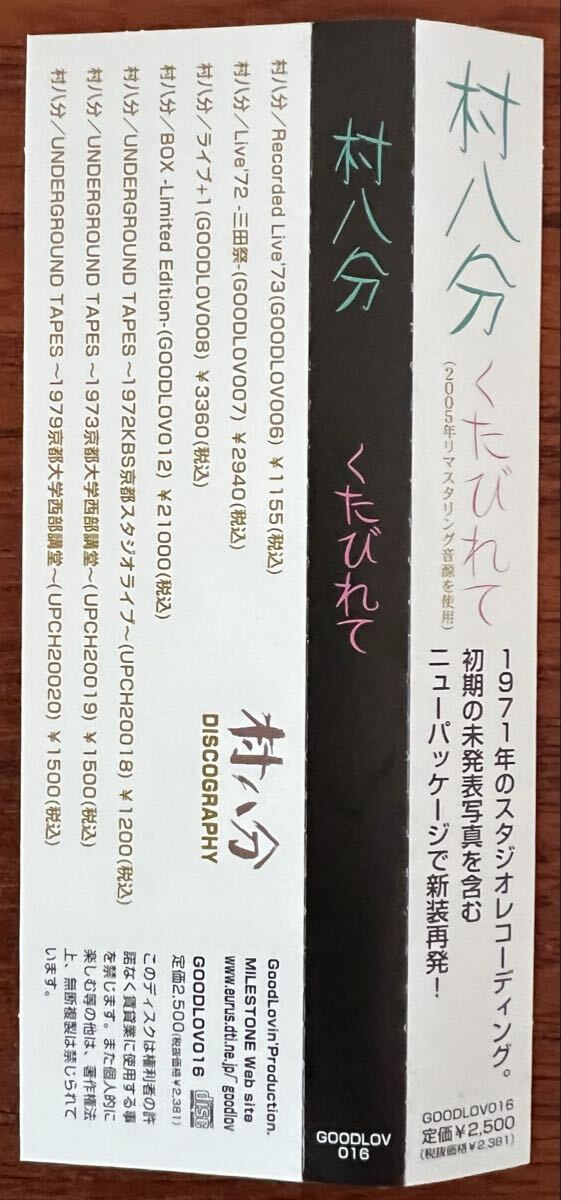 村八分
くたびれて
(2005年リマスタリング音源を使用)
1971年のスタジオレコーディング。
初期の未発表写真を含む
ニューパッケージで新装再発！
GOODLOV016
定価¥2,500
(税抜価格¥2,381)
村八分
くたびれて
GOODLOV
016
村八分／Recorded Live'73(GOODLOV006) ¥1155(税込)
村八分／Live'72 -三田祭-(GOODLOV007) ¥2940(税込)
村八分／ライブ+1(GOODLOV008) ¥3360(税込)
村八分／BOX -Limited Edition-(GOODLOV012) ¥21000(税込)
村八分／UNDERGROUND TAPES ～1972KBS京都スタジオライブ～(UPCH20018) ¥1200(税込)
村八分／UNDERGROUND TAPES ～1973京都大学西部講堂～(UPCH20019) ¥1500(税込)
村八分／UNDERGROUND TAPES ～1979京都大学西部講堂～(UPCH20020) ¥1500(税込)
村八分
DISCOGRAPHY
GoodLovin'Production.
MILESTONE Web site
www.eurus.dti.ne.jp/~goodlov
GOODLOV016 disc
定価2,500(税抜価格¥2,381)
このディスクは権利者の許
諾なく賃貸業に使用する事
を禁じます。また個人的に
楽しむ等の他は、著作権法
上、無断複製は禁じられて
います。